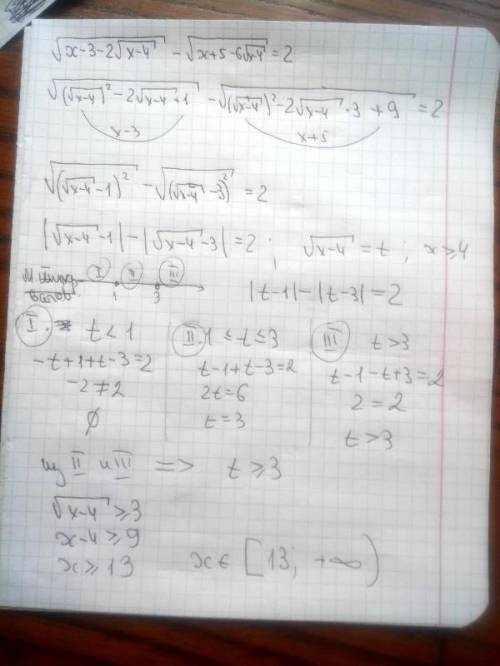 √(x-3-2√(x-4)) - √(x+5-6√(x-4)) = 2
√((√(x-4))²-2√(x-4)+1) - √((√(x-4))²-2√(x-4)·3+9) = 2
x-3 x+5
√((√(x-4)-1)²) - √((√(x-4)-3)²) = 2
|√(x-4)-1| - |√(x-4)-3| = 2; √(x-4) = t; x ≥ 4
I II III
1 3 |t-1|-|t-3|=2
I. t < 1
-t+1+t-3=2
-2≠2
∅
II. 1 ≤ t ≤ 3
t-1+t-3=2
2t=6
t=3
III t>3
t-1-t+3=2
2=2
t>3
из II и III => t ≥ 3
√(x-4) ≥ 3
x-4 ≥ 9
x ≥ 13 x ∈ [13; +∞)